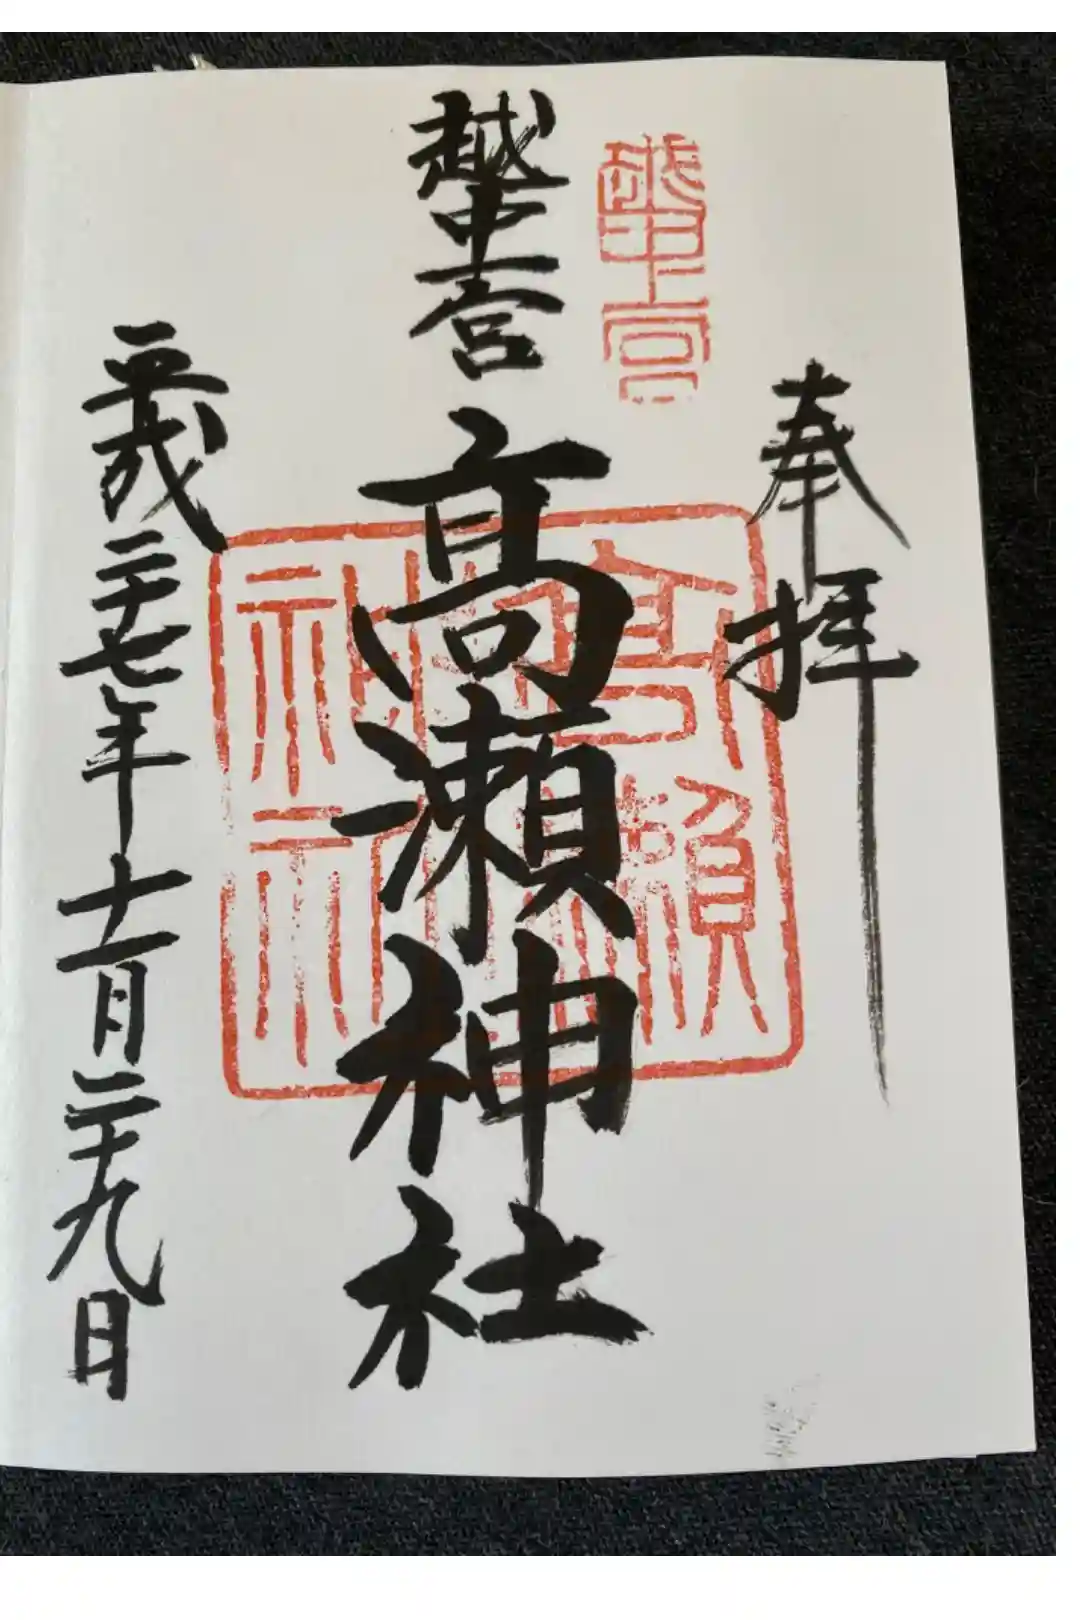 奉拝
越中一宮
越中一宮
高瀬神社
高瀬
神社
平成二十七年十一月二十九日